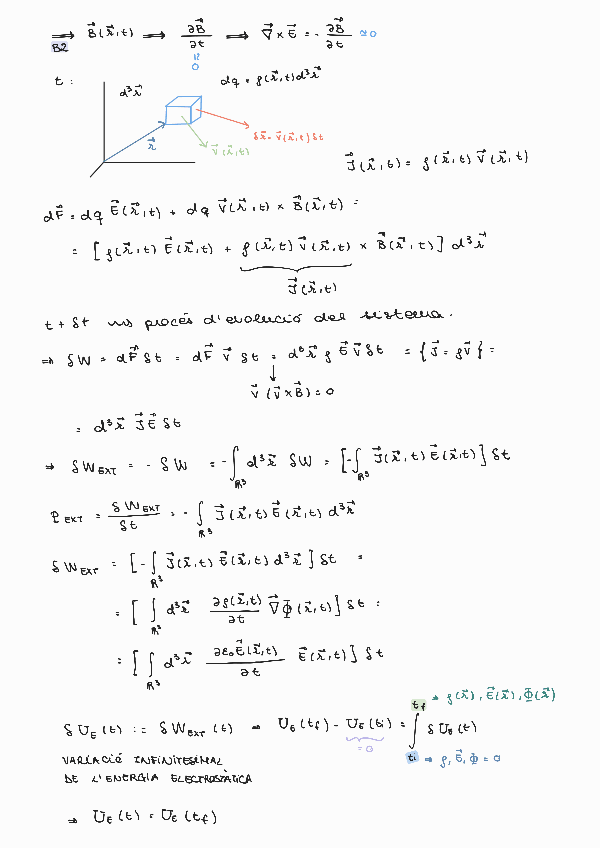 ⟹ B⃗(r⃗,t) ⟹ ∂B⃗/∂t ⟹ ∇⃗ × E⃗ = - ∂B⃗/∂t ≈ 0
B2
=
0
t : d³r⃗ dq = ρ(r⃗,t) d³r⃗
r⃗
δr⃗ = v⃗(r⃗,t) δt
v⃗(r⃗,t)
J⃗(r⃗,t) = ρ(r⃗,t) v⃗(r⃗,t)
dF⃗ = dq E⃗(r⃗,t) + dq v⃗(r⃗,t) × B⃗(r⃗,t) =
= [ρ(r⃗,t) E⃗(r⃗,t) + ρ(r⃗,t) v⃗(r⃗,t) × B⃗(r⃗,t)] d³r⃗
J⃗(r⃗,t)
t + δt ⇝ procés d'evolució del sistema.
⟹ δW = dF⃗ δt = dF⃗ v⃗ δt = d³r⃗ ρ E⃗ v⃗ δt = {J⃗ = ρv⃗} =
↓
v⃗ (v⃗ × B⃗) = 0
= d³r⃗ J⃗ E⃗ δt
⟹ δW_EXT = - δW = - ∫_R³ d³r⃗ δW = [-∫_R³ J⃗(r⃗,t) E⃗(r⃗,t)] δt
P_EXT = δW_EXT/δt = - ∫_R³ J⃗(r⃗,t) E⃗(r⃗,t) d³r⃗
δW_EXT = [-∫_R³ J⃗(r⃗,t) E⃗(r⃗,t) d³r⃗] δt =
= [∫_R³ d³r⃗ ∂ρ(r⃗,t)/∂t ∇⃗Φ(r⃗,t)] δt =
= [∫_R³ d³r⃗ ∂ε₀E⃗(r⃗,t)/∂t E⃗(r⃗,t)] δt
t_f ⇒ ρ(r⃗), E⃗(r⃗), Φ(r⃗)
δU_E(t) := δW_EXT(t) ⇒ U_E(t_f) - U_E(t_i) = ∫ δU_E(t)
= 0
t_i ⇒ ρ, E⃗, Φ = 0
VARIACIÓ INFINITESIMAL
DE L'ENERGIA ELECTROSTÀTICA
⇒ U_E(t) = U_E(t_f)